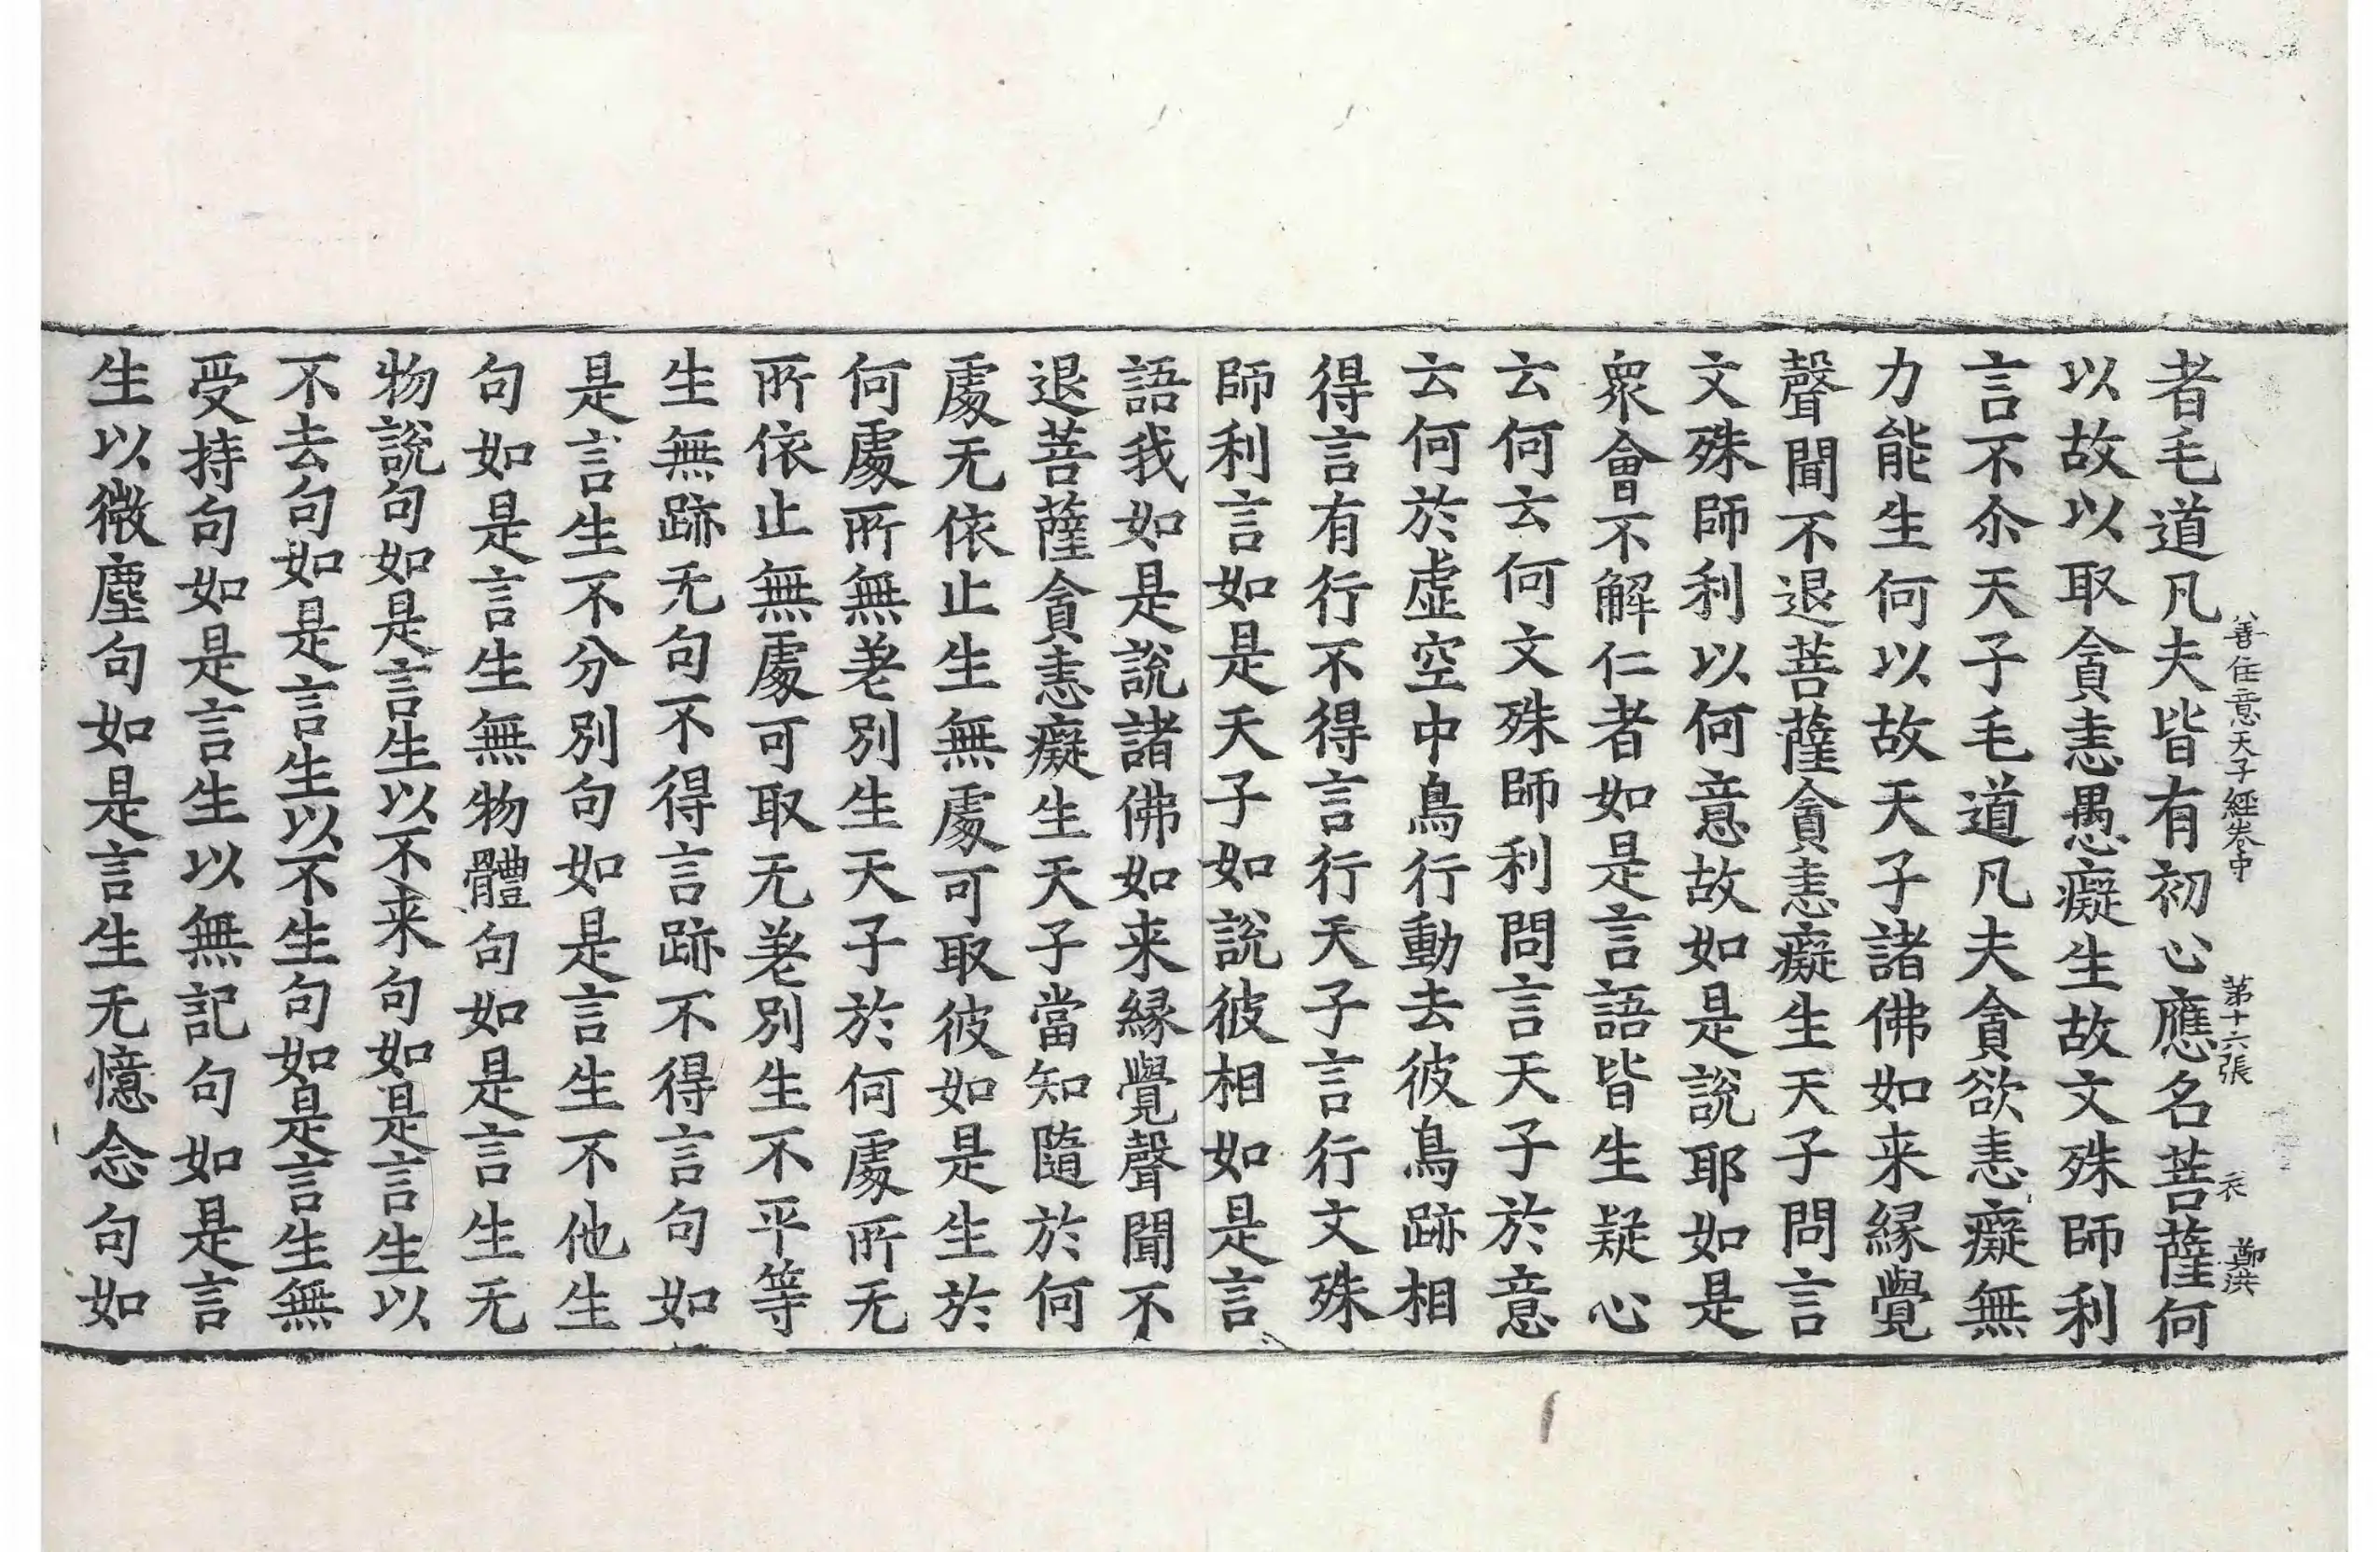 善住意天子經卷中　第十六張　衣　鄭洪
者毛道凡夫皆有初心應名菩薩何
以故以取貪恚愚癡生故文殊師利
言不尒天子毛道凡夫貪欲恚癡無
力能生何以故天子諸佛如来緣覺
聲聞不退菩薩貪恚癡生天子問言
文殊師利以何意故如是說耶如是
衆會不解仁者如是言語皆生疑心
云何云何文殊師利問言天子於意
云何於虛空中鳥行動去彼鳥跡相
得言有行不得言行天子言行文殊
師利言如是天子如說彼相如是言
語我如是說諸佛如来緣覺聲聞不
退菩薩貪恚癡生天子當知隨於何
處无依止生無處可取彼如是生於
何處所無差別生天子於何處所无
所依止無處可取无差別生不平等
生無跡无句不得言跡不得言句如
是言生不分別句如是言生不他生
句如是言生無物體句如是言生无
物說句如是言生以不来句如是言生以
不去句如是言生以不生句如是言生無
受持句如是言生以無記句如是言
生以微塵句如是言生无憶念句如